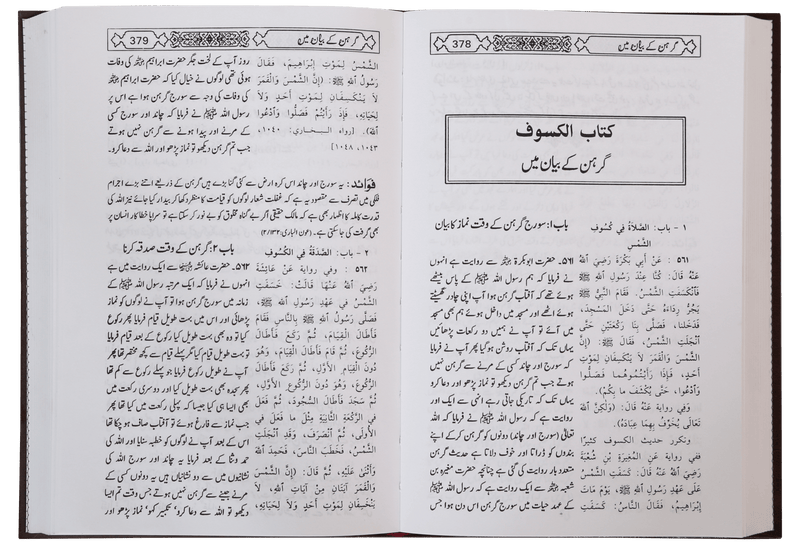 گرہن کے بیان میں
378
كتاب الكسوف
گرہن کے بیان میں
١ - باب: الصَّلاَةُ فِي كُسُوفِ
الشَّمْسِ
٥٦١ : عَنْ أَبِي بَكْرَةَ رَضِيَ اللهُ
عَنْهُ قَالَ: كُنَّا عِنْدَ رَسُولِ اللهِ ﷺ
فَانْكَسَفَتِ الشَّمْسُ، فَقَامَ النَّبِيُّ ﷺ
يَجُرُّ رِدَاءَهُ حَتَّى دَخَلَ المَسْجِدَ،
فَدَخَلْنَا، فَصَلَّى بِنَا رَكْعَتَيْنِ حَتَّى
انْجَلَتِ الشَّمْسُ، فَقَالَ ﷺ: (إِنَّ
الشَّمْسَ وَالْقَمَرَ لاَ يَنْكَسِفَانِ لِمَوْتِ
أَحَدٍ، فَإِذَا رَأَيْتُمُوهُمَا فَصَلُّوا
وَادْعُوا، حَتَّى يُكْشَفَ ما بِكُمْ).
وَفِي رواية عَنْهُ قَالَ: (وَلٰكِنَّ اللهَ
تَعَالَى يُخَوِّفُ بِهِمَا عِبَادَهُ).
وتكرر حديث الكسوف كثيرًا
ففي رواية عَنِ المُغِيرَةِ بْنِ شُعْبَةَ
رَضِيَ اللهُ عَنْهُ قَالَ: كَسَفَتِ الشَّمْسُ
عَلَى عَهْدِ رَسُولِ اللهِ ﷺ، يَوْمَ مَاتَ
إِبْرَاهِيمُ، فَقَالَ النَّاسُ: كَسَفَتِ
باب ۱: سورج گرہن کے وقت نماز کا بیان
۵۶۱ حضرت ابوبکرۃ رضی اللہ عنہ سے روایت ہے انہوں
نے فرمایا کہ ہم رسول اللہ ﷺ کے پاس بیٹھے
ہوئے تھے کہ آفتاب گرہن ہوا آپ اپنی چادر گھسیٹتے
ہوئے اٹھے اور مسجد میں داخل ہوئے ہم بھی مسجد
میں آئے تو آپ نے ہمیں دو رکعات پڑھائیں
یہاں تک کہ آفتاب روشن ہو گیا پھر آپ نے
فرمایا کہ سورج اور چاند کسی کے مرنے سے گرہن نہیں
ہوتے جب تم گرہن دیکھو تو نماز پڑھو اور دعا کرو
یہاں تک کہ تاریکی جاتی رہے انہی سے ایک اور
روایت ہے کہ رسول اللہ ﷺ نے فرمایا کہ اللہ
تعالیٰ (سورج اور چاند) دونوں کو گرہن کر کے اپنے
بندوں کو ڈراتا اور خوف دلاتا ہے حدیث گرہن
متعدد بار روایت کی گئی ہے چنانچہ حضرت مغیرہ بن
شعبہ سے ایک روایت ہے کہ رسول اللہ ﷺ
کے عہد حیات میں سورج گرہن اس دن ہوا جس
گرہن کے بیان میں
379
الشَّمْسُ لِمَوْتِ إِبْرَاهِيمَ، فَقَالَ
رَسُولُ اللهِ ﷺ: (إِنَّ الشَّمْسَ وَالْقَمَرَ
لاَ يَنْكَسِفَانِ لِمَوْتِ أَحَدٍ وَلاَ
لِحَيَاتِهِ، فَإِذَا رَأَيْتُمْ فَصَلُّوا وَادْعُوا
اللهَ). [رواه البخاري: ١٠٤٠،
١٠٤٣، ١٠٤٨]
روز آپ کے لخت جگر حضرت ابراہیم رضی اللہ عنہ کی وفات
ہوئی تھی لوگوں نے خیال کیا کہ حضرت ابراہیم رضی اللہ عنہ
کی وفات کی وجہ سے سورج گرہن ہوا ہے اس پر
رسول اللہ ﷺ نے فرمایا کہ چاند اور سورج کسی
کے مرنے اور پیدا ہونے سے گرہن نہیں ہوتے
جب تم گرہن دیکھو تو نماز پڑھو اور اللہ سے دعا کرو۔
فوائد: یہ سورج اور چاند اس کرہ ارض سے کئی گنا بڑے ہیں گرہن کے ذریعے اتنے بڑے اجرام
فلکی میں تصرف سے مقصود یہ ہے کہ غفلت شعار لوگوں کو قیامت کا منظر دکھا کر بیدار کیا جائے نیز اللہ کی
قدرت کاملہ کا اظہار بھی ہے کہ مالک حقیقی اگر بے گناہ مخلوق کو بے نور کر سکتا ہے تو سراپا خطا کار انسان پر
بھی گرفت کی جا سکتی ہے۔ (عون الباری: ۲/۱۳۲)
٢ - باب: الصَّدَقَةُ فِي الكُسُوفِ
٥٦٢ : وفي رواية عَنْ عَائِشَةَ
رَضِيَ اللهُ عَنْهَا قَالَتْ: خَسَفَتِ
الشَّمْسُ فِي عَهْدِ رَسُولِ اللهِ ﷺ،
فَصَلَّى رَسُولُ اللهِ ﷺ بِالنَّاسِ فَقَامَ
فَأَطَالَ الْقِيَامَ، ثُمَّ رَكَعَ فَأَطَالَ
الرُّكُوعَ، ثُمَّ قَامَ فَأَطَالَ الْقِيَامَ، وَهُوَ
دُونَ الْقِيَامِ الأَوَّلِ، ثُمَّ رَكَعَ فَأَطَالَ
الرُّكُوعَ، وَهُوَ دُونَ الرُّكُوعِ الأَوَّلِ،
ثُمَّ سَجَدَ فَأَطَالَ السُّجُودَ، ثُمَّ فَعَلَ
فِي الرَّكْعَةِ الثَّانِيَةِ مِثْلَ ما فَعَلَ في
الأُولَى، ثُمَّ انْصَرَفَ، وَقَدِ انْجَلَتِ
الشَّمْسُ، فَخَطَبَ النَّاسَ، فَحَمِدَ اللهَ
وَأَثْنَى عَلَيْهِ، ثُمَّ قَالَ: (إِنَّ الشَّمْسَ
وَالْقَمَرَ آيَتَانِ مِنْ آيَاتِ اللهِ، لاَ
يَنْخَسِفَانِ لِمَوْتِ أَحَدٍ وَلاَ لِحَيَاتِهِ،
باب ۲: گرہن کے وقت صدقہ کرنا
۵۶۲ حضرت عائشہ رضی اللہ عنہا سے ایک روایت میں ہے
انہوں نے فرمایا کہ ایک مرتبہ رسول اللہ ﷺ کے
زمانہ میں سورج گرہن ہوا تو آپ نے لوگوں کو نماز
پڑھائی اور اس میں بہت طویل قیام فرمایا پھر رکوع
کیا تو وہ بھی بہت طویل کیا رکوع کے بعد قیام فرمایا
تو بہت طویل قیام کیا مگر پہلے قیام سے کچھ مختصر تھا پھر
آپ نے طویل رکوع فرمایا جو پہلے رکوع سے کم تھا
پھر سجدہ بھی بہت طویل کیا اور دوسری رکعت میں
بھی ایسا ہی کیا جیسا کہ پہلی رکعت میں کیا تھا پھر
جب نماز سے فارغ ہوئے تو آفتاب صاف ہو چکا تھا
اس کے بعد آپ نے لوگوں کو خطبہ سنایا اور اللہ کی
حمد و ثنا کے بعد فرمایا یہ چاند اور سورج اللہ کی
نشانیوں میں سے دو نشانیاں ہیں یہ دونوں کسی کے
مرنے جینے سے گرہن نہیں ہوتے جس وقت تم ایسا
دیکھو تو اللہ سے دعا کرو، تکبیر کہو، نماز پڑھو اور